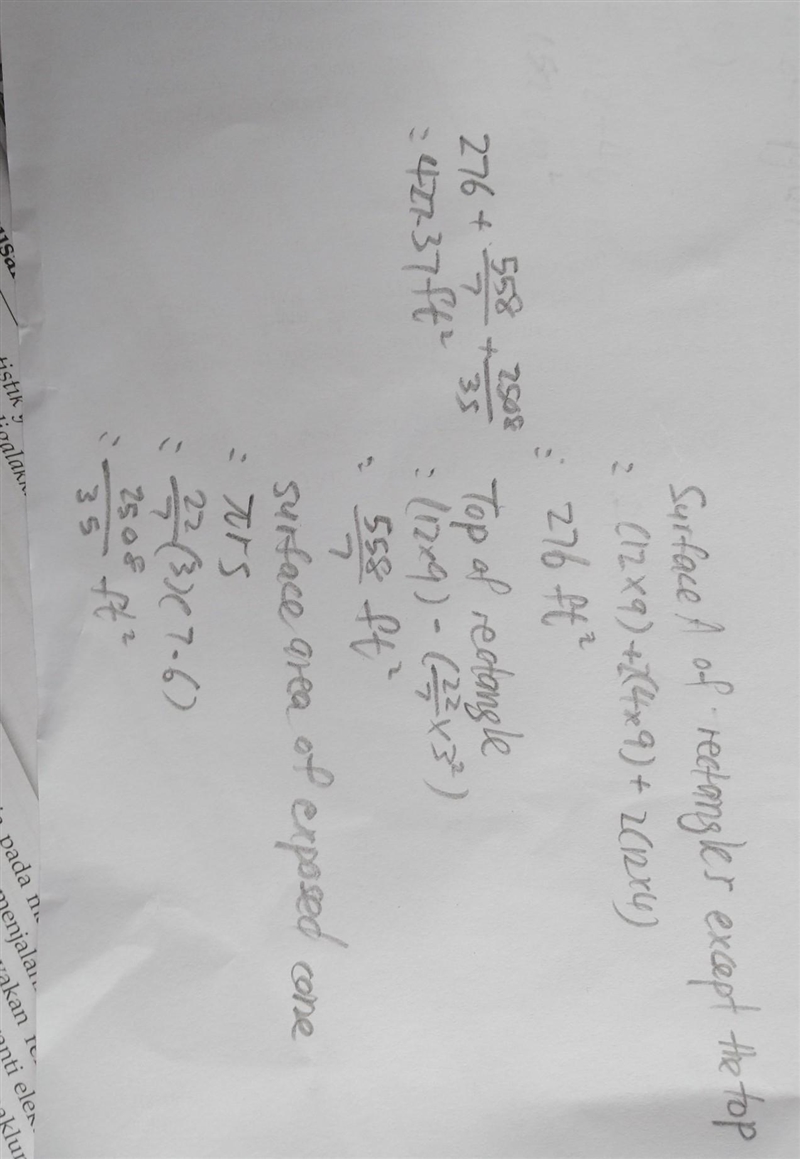 Surface A of rectangles except the top
= (12 x 9) + 2(4 x 9) + 2(12 x 4)
= 276 ft²
Top of rectangle
= (12 x 9) - (22/7 x 3²)
= 558/7 ft²
surface area of exposed cone
= πrs
= 22/7 (3)(7-6)
= 2508/35 ft²
276 + 558/7 + 2508/35
= 427.37 ft²
pada
menjalan